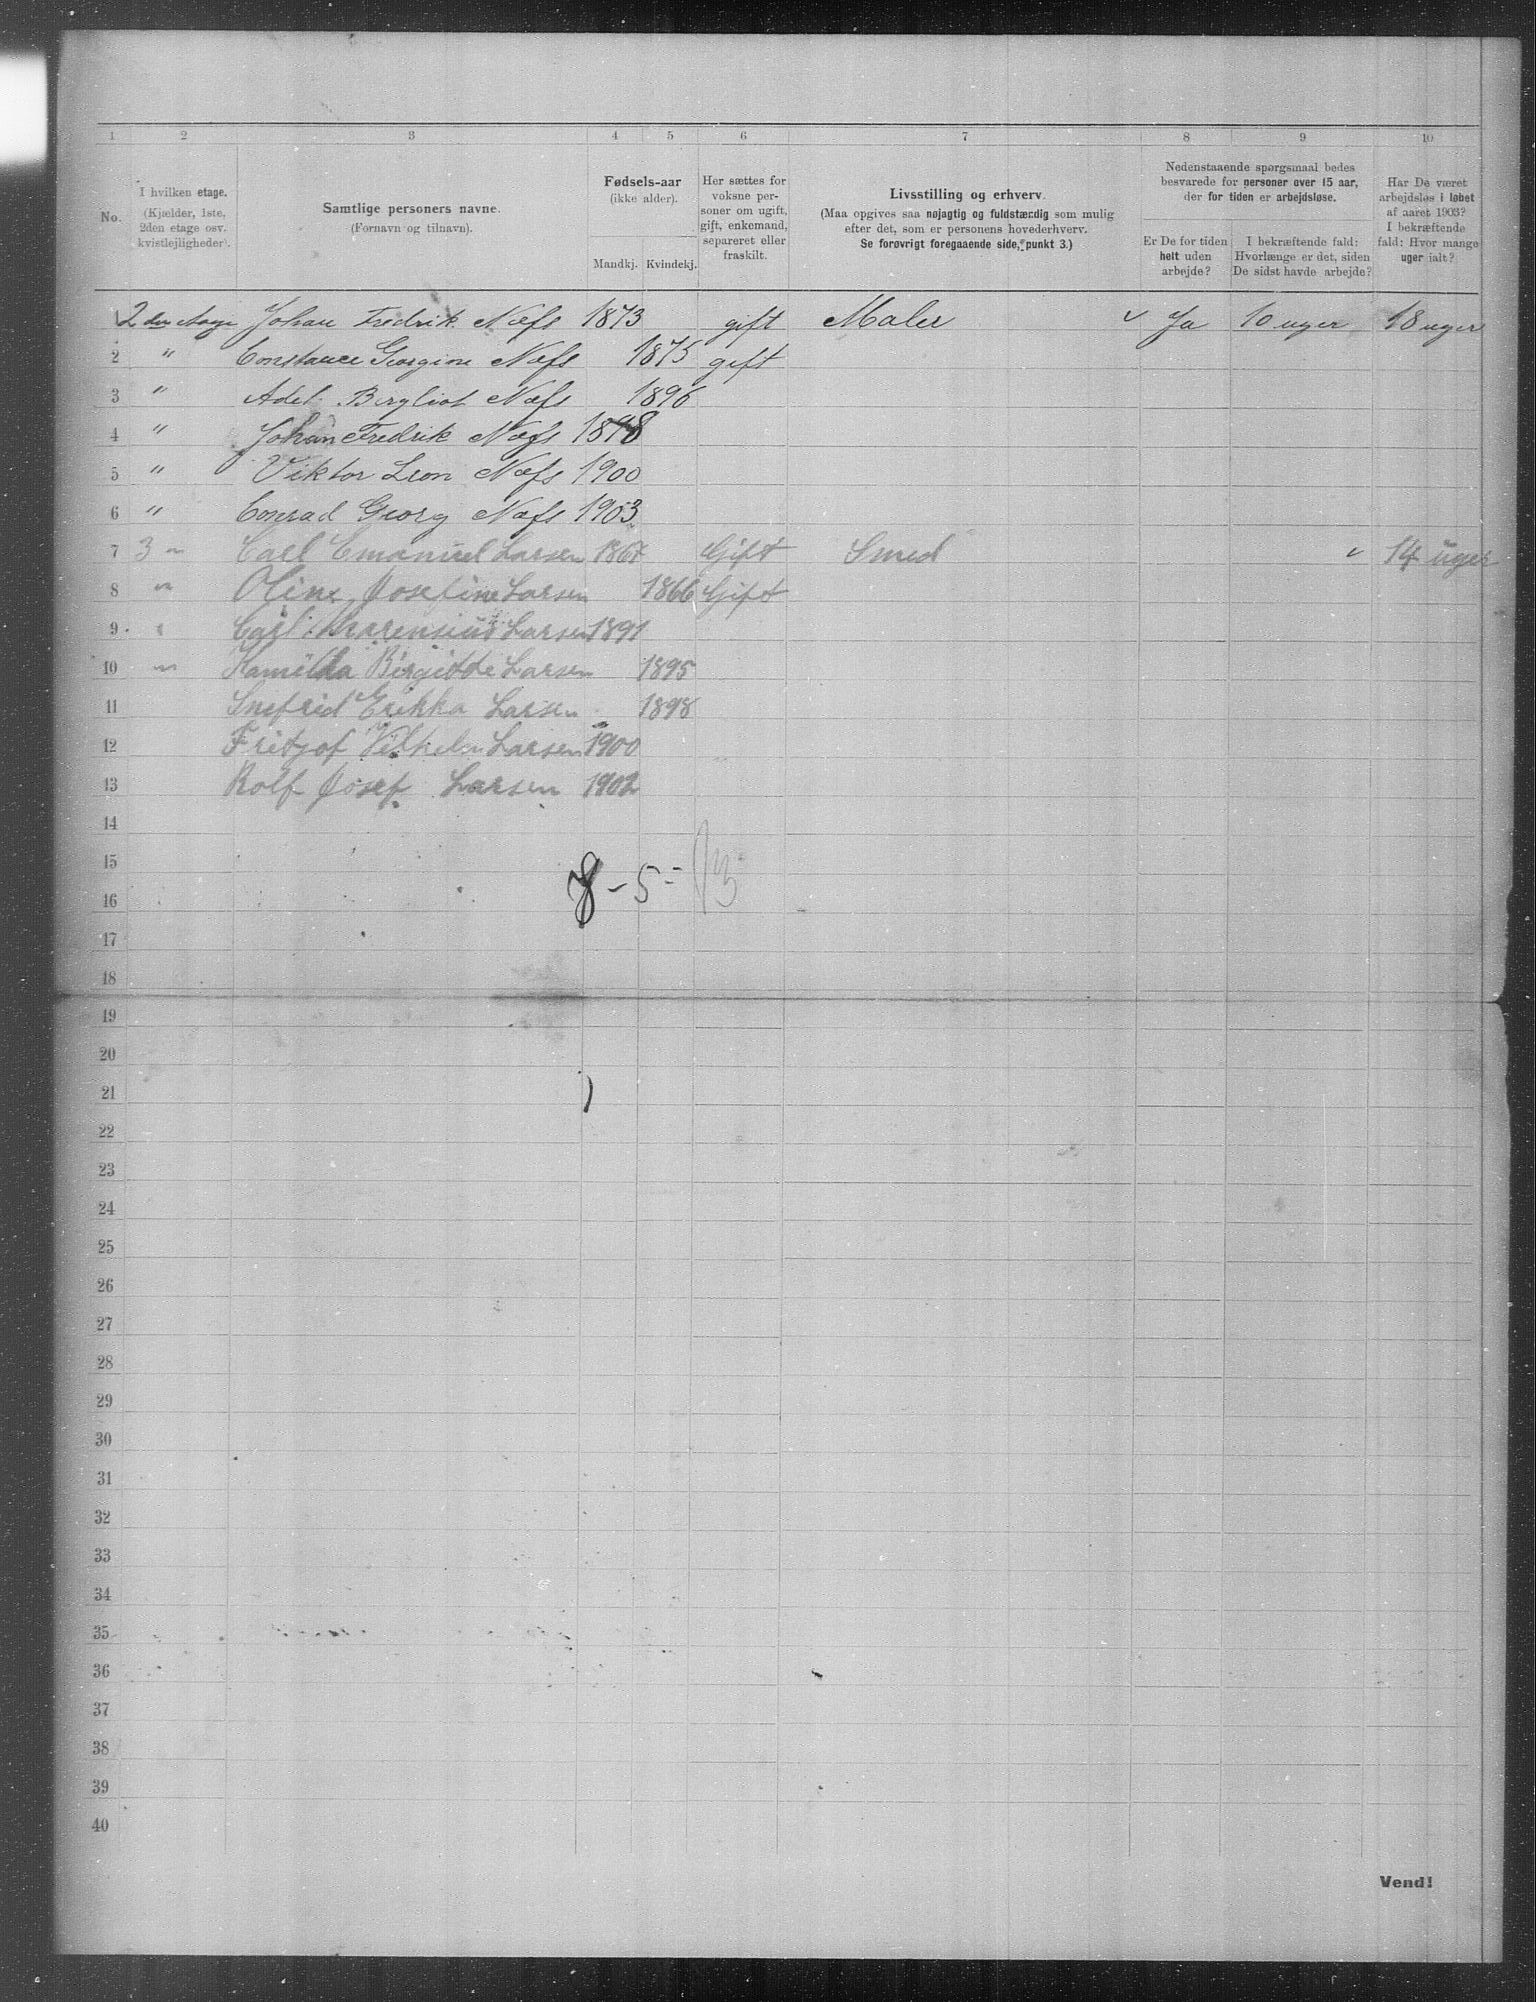 1 2 3 4 5 6 7 8 9 10
No.
I hvilken etage.
(Kjælder, 1ste,
2den etage osv.
kvistlejligheder).
Samtlige personers navne.
(Fornavn og tilnavn).
Fødsels-aar
(ikke alder).
Mandkj. Kvindekj.
Her sættes for
voksne per-
soner om ugift,
gift, enkemand,
separeret eller
fraskilt.
Livsstilling og erhverv.
(Maa opgives saa nøjagtig og fuldstændig som mulig
efter det, som er personens hovederhverv.
Se forøvrigt foregaaende side, punkt 3.)
Nedenstaaende spørgsmaal bedes
besvarede for personer over 15 aar,
der for tiden er arbejdsløse.
Er De for tiden
helt uden
arbejde?
I bekræftende fald:
Hvorlænge er det, siden
De sidst havde arbejde?
Har De været
arbejdsløs i løbet
af aaret 1903?
I bekræftende
fald: Hvor mange
uger ialt?
2 den etage Johan Fredrik Næfs 1873 gift Maler Ja 10 uger 18 uger
2 " Constance Georgine Næfs 1875 gift
3 " Adel Bergliot Næfs 1896
4 " Johan Fredrik Næfs 1898
5 " Viktor Leon Næfs 1900
6 " Conrad Georg Næfs 1903
7 3 " Carl Emanuel Larsen 1867 Gift Smed 14 uger
8 " Oline Josefine Larsen 1866 Gift
9 Carl Larsen 1891
10 " Kamilda Birgidde Larsen 1895
11 Snefrid Erikka Larsen 1898
12 Fritjof Vilhelm Larsen 1900
13 Rolf Josef Larsen 1902
14
15
8 - 5 = 13
16
17
18
19
20
21
22
23
24
25
26
27
28
29
30
31
32
33
34
35
36
37
38
39
40
Vend!